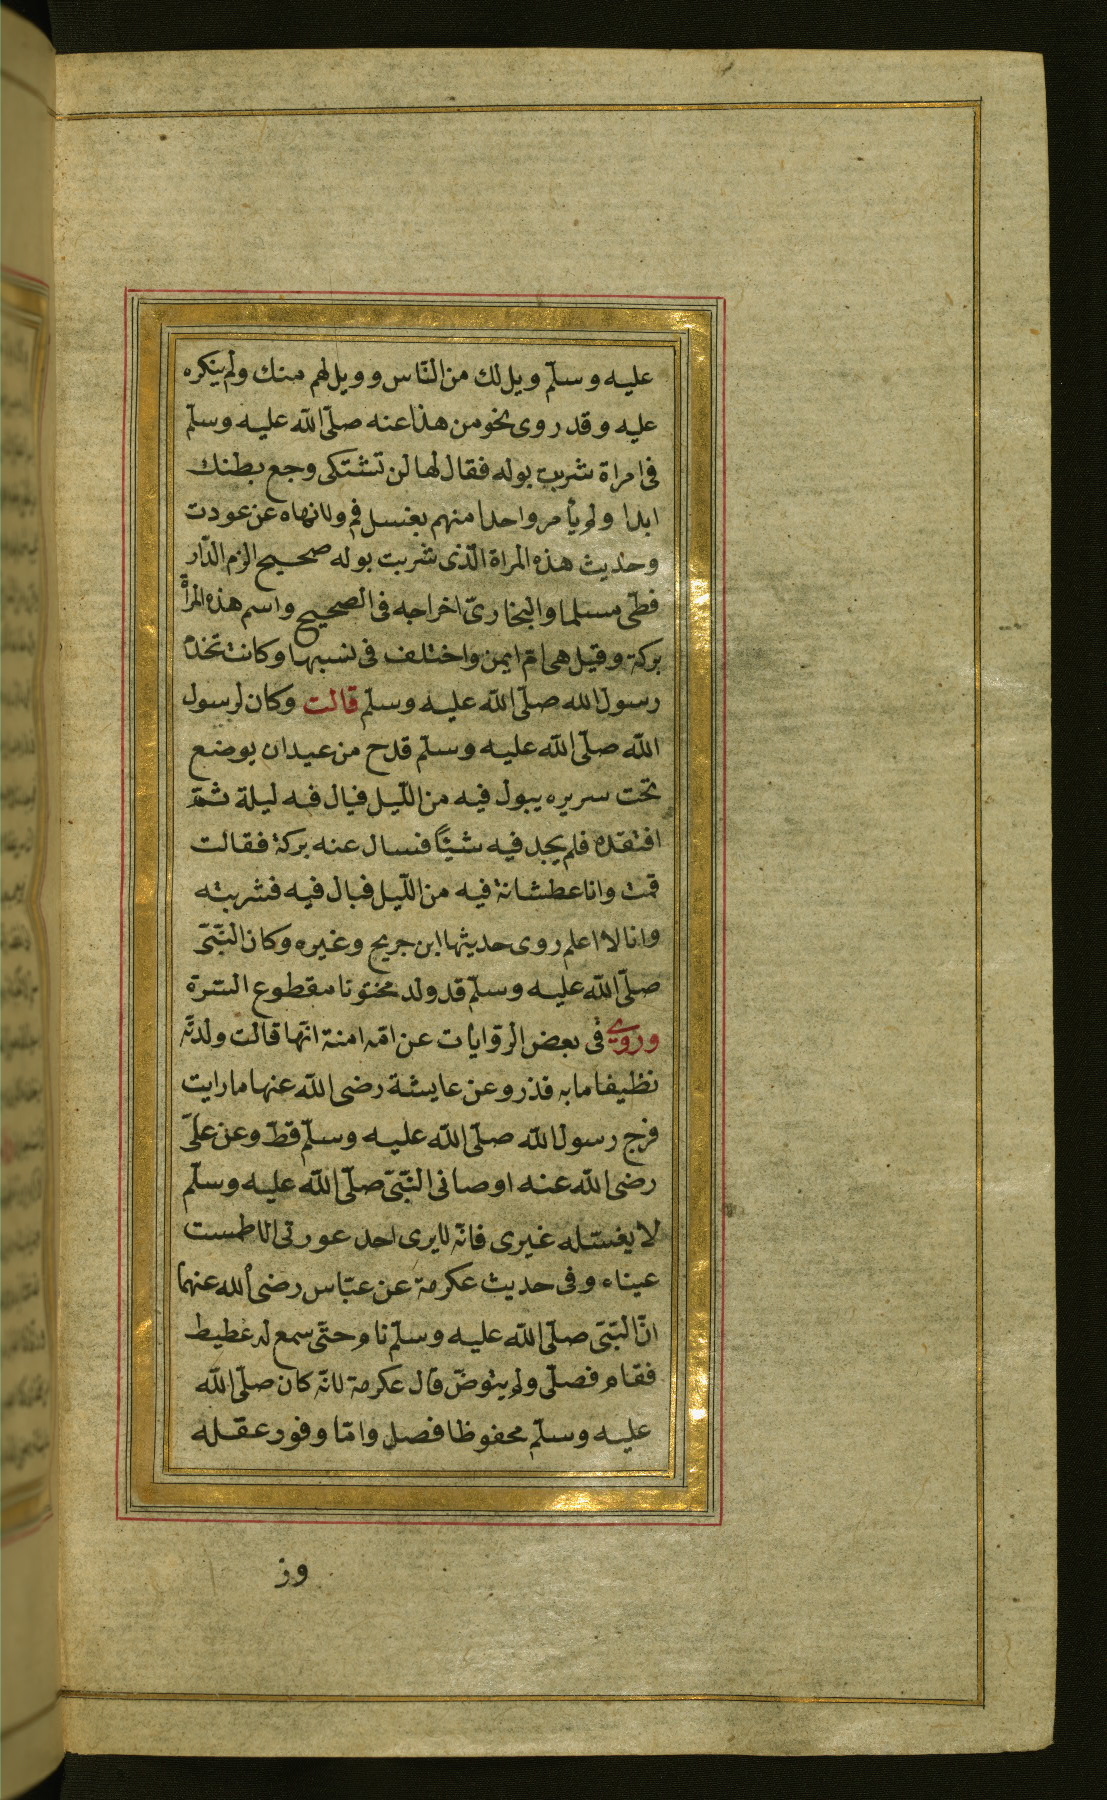 عليه وسلّم ويل لك من النّاس وويل لهم منك ولم ينكره
عليه وقد روى نحو من هذا عنه صلّى اللّه عليه وسلّم
فى امراة شربت بوله فقال لها لن تشتكى وجع بطنك
ابدا ولم يأمر واحدا منهم بغسل فم ولا نهاه عن عودت
وحذيث هذه المراة الّذى شربت بوله صحيح الزم الدّار
قطّى مسلما والبخارىّ اخراجه فى الصحيح واسم هذه المرأة
بركة وقيل هى امّ ايمن واختلف فى نسبها وكانت تخدم
رسول الله صلّى اللّه عليه وسلّم قالت وكان لرسول
اللّه صلّى اللّه عليه وسلّم قدح من عيدان يوضع
تحت سريره يبول فيه من اللّيل فبال فيه ليلة ثمّ
افتقده فلم يجد فيه شيئًا فسال عنه بركة فقالت
قمت وانا عطشانة فيه من اللّيل فبال فيه فشربته
وانا لا اعلم روى حديثها ابن جريج وغيره وكان النّبّى
صلّى اللّه عليه وسلّم قد ولد مختونا مقطوع السّرة
وروى فى بعض الرّوايات عن امّه امنة انّها قالت ولدتّه
نظيفا مابه قذر وعن عايشة رضى اللّه عنها مارايت
فرج رسول اللّه صلّى اللّه عليه وسلّم قطّ وعن علىّ
رضى اللّه عنه اوصانى النّبّى صلّى اللّه عليه وسلّم
لا يغسّله غيرى فانّه لا يرى احد عورتى الا طمست
عيناه وفى حديث عكرمة عن عبّاس رضى الله عنهما
انّ النّبّى صلّى اللّه عليه وسلّم نام حتّى سمع له غطيط
فقام فصلّى ولم يتوضّ قال عكرمة لانّه كان صلّى اللّه
عليه وسلّم محفوظا فصل وامّا وفور عقله